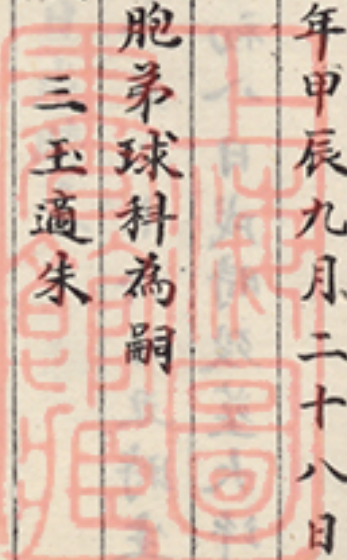 年甲辰九月二十八日
胞弟球科為嗣
三玉適朱